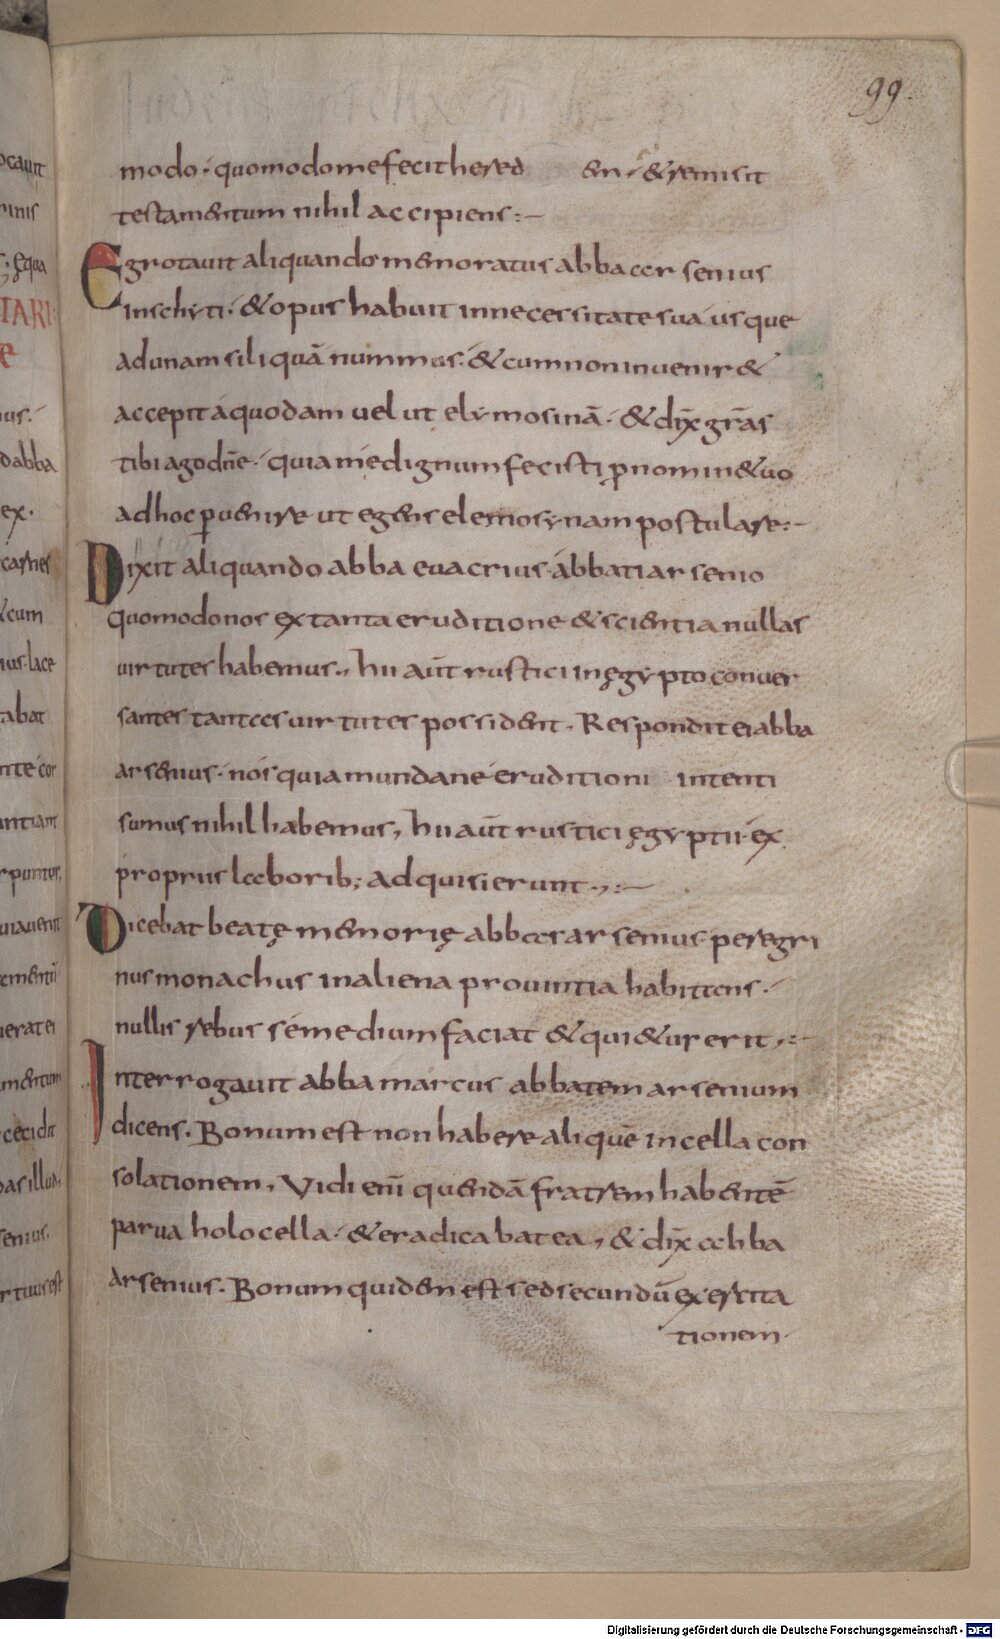 99.
modo· quomodo me fecit hered en· & remisit
testamentum nihil accipiens:—
Egrotauit aliquando memoratus abba arsenius
in schyti· & opus habuit in necessitate sua usque
ad unam siliquā nummus· & cum non inuenir&
accepit a quodam uel ut elymosinā· & dix̄ gr̄as
tibi ago dn̄e· quia me dignum fecisti p̄ nomine tuo
ad hoc ꝑuenire ut egens elemosynam postulare:—
Dixit aliquando abba euacrius abbati arsenio
Quomodo nos ex tanta eruditione & scientia nullas
uirtutes habemus., hii aūt rustici in ęgypto conuer
santes tantas uirtutes possident. Respondit ei abba
arsenius· nos quia mundane eruditioni intenti
sumus nihil habemus, hii aūt rustici ęgyptii ex
propriis laborib; adquisierunt.,:—
Dicebat beatę memorię abbas arsenius peregri
nus monachus in aliena prouintia habitans·
nullis rebus se medium faciat & qui&us erit,:—
Interrogauit abba marcus abbatem arsenium
dicens. Bonum est non habere aliquē in cella con
solationem, Vidi enī quendā fratrem habentē
parua holocella· & eradicabat ea, & dix̄ abba
arsenius. Bonum quidem est sed secundū exercita
tionem·
ocauit
inis
ęqua
IARI:
us.
dabba
ex.
carnes
&cum
ius·lace
tabat
nte cor
antiam
rpuntes,
uiauenit
ement̄
ierat ei
mentum
cecidit
bas illud,
senius.
rtuus est
Digitalisierung gefördert durch die Deutsche Forschungsgemeinschaft - DFG